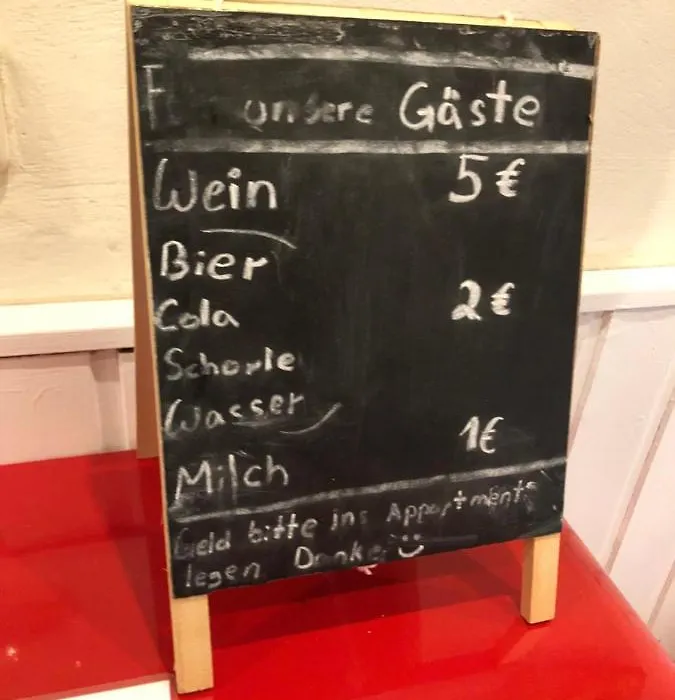 unsere Gäste
Wein 5 €
Bier
Cola 2 €
Schorle
Wasser
Milch 1€
Geld bitte ins Appartment
legen Danke